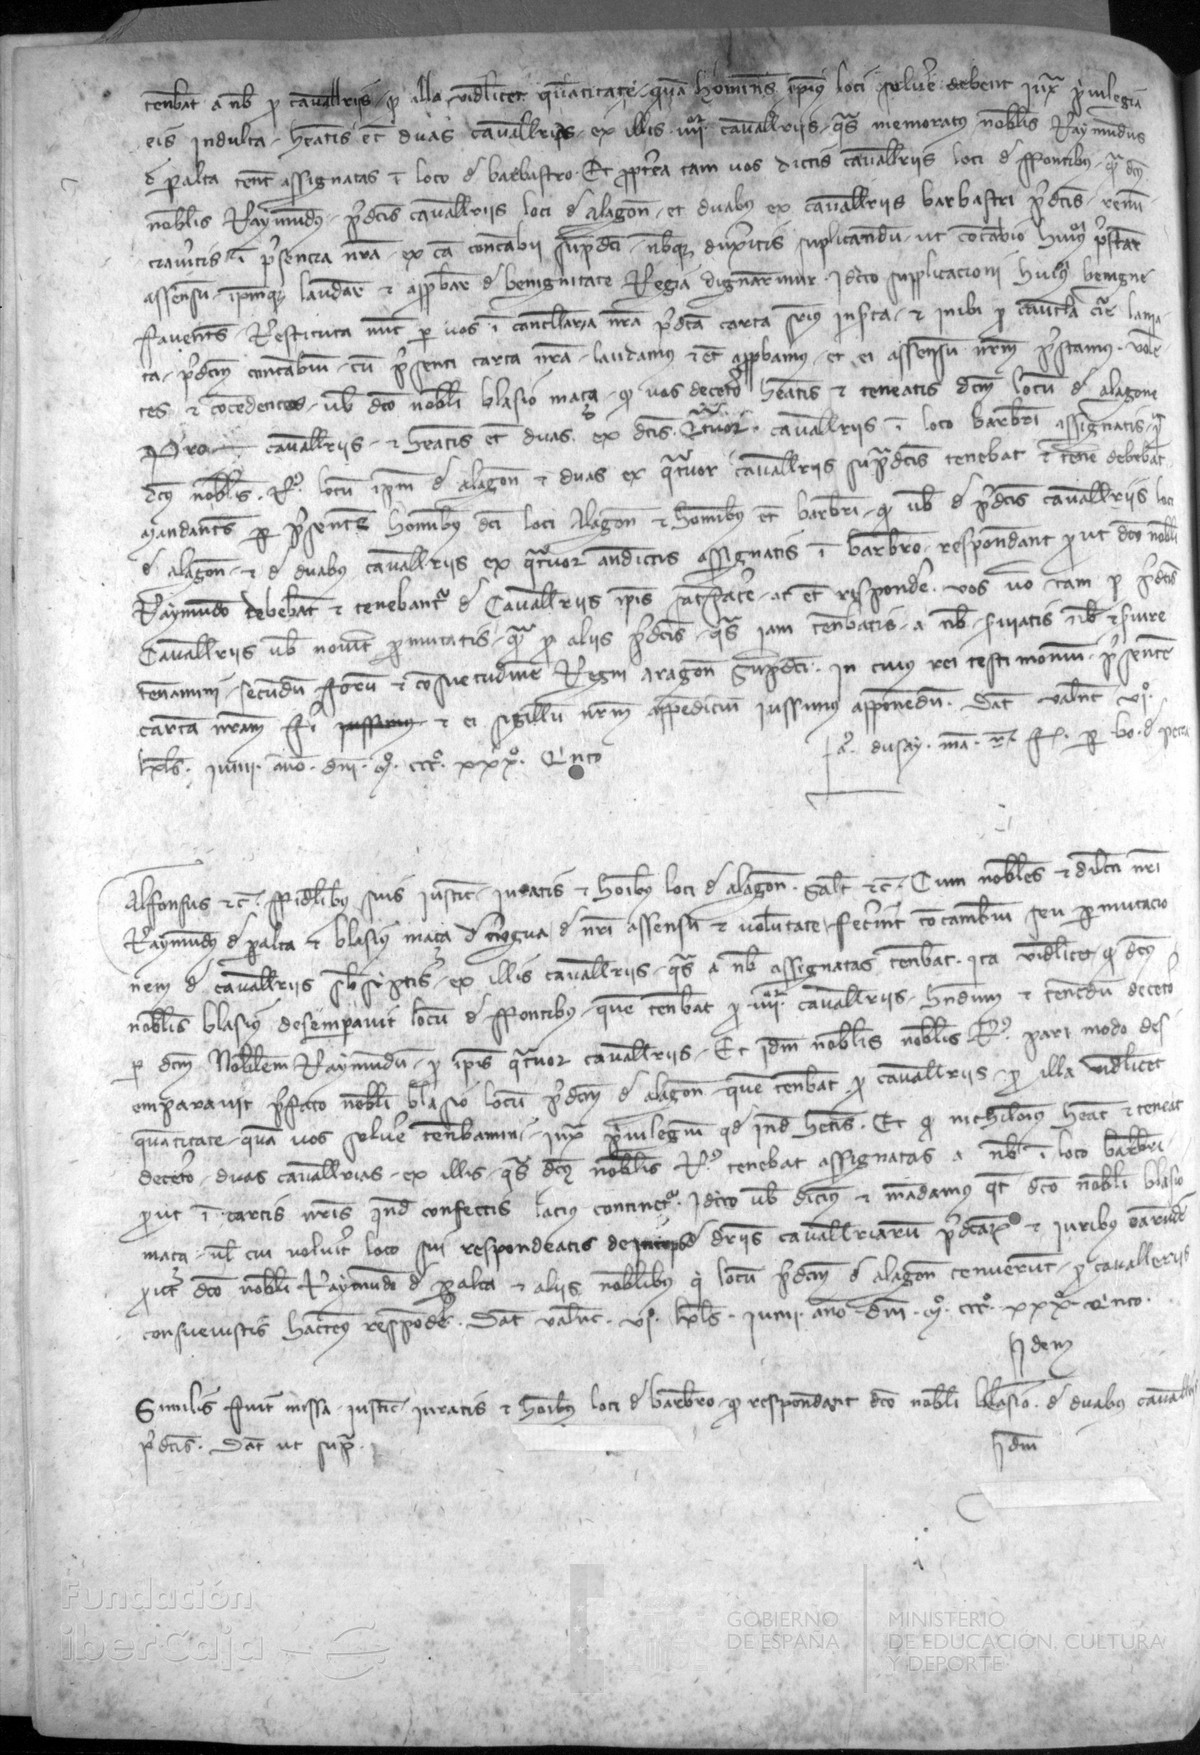 tenebat a nob p cavalleriis p illa videlicet quantitate quam homines ipius loci solvere debent iuxta privilegia
eis indulta heatis et duas cavallerias ex illis iiii cavalleriis qs memoratus nobilis Raymundus
d peralta tenet assignatas i loco d barbastro Et propterea tam vos dictis cavalleriis loci d ffontibus qm dcus
nobilis Raymundus pdcis cavalleriis loci d alagon et duabus ex cavalleriis barbastri pdcis renun
ciaveritis i psencia nra ex ca concambii supdci nobisque duxeritis suplicandum ut concambio huiusmodi pstare
assensum ipmque laudare et approbare d benignitate Regia dignaremur Idcirco supplicacioni huiusmodi benigne
ffaventes Restituta nunc per vos i cancellaria nra pdca carta inibi p cautela lania
ta pdcum concambium cum psenti carta nra laudamus et approbamus et ei assensum nrm pstamus volen
tes et concedentes vob dco nobili blasio maça q vos decetero heatis et teneatis dcm locum d alagone
Pro cavalleriis et heatis et duas ex dcis Quatuor cavalleriis i loco barbri assignatis q
dcus nobilis R locum ipm d alagon et duas ex quatuor cavalleriis supradcis tenebat et tene debebat
Mandantes per psentes hominibus dci loci Alagon et hominibus et barbri q vob d pdcis cavalleriis loci
d alagon et d duabus cavalleriis ex quatuor andictis assignatis i barbro respondeant put dco nobili
Raymundo debebant et tenebantur d Cavalleriis ipis satisfacere ac et respondere vos vo tam p pdcis
Cavalleriis vob noviter permutatis qm p aliis pdcis qs iam tenebatis a nob serviatis nob et servire
teneamini secundum fforum et consuetudinem Regni aragon supdci In cuius rei testimonium psentem
carta nram fi iussimus et ei sigillum nrm appendicium iussimus apponendum Dat valnc vi
kls iunii ano dni m ccc xxx Qinto
a dusay ma r f per bo d petra
Alfonsus etc ffidelibus suis iustic iuratis et hoibus loci d alagon Salt etc Cum nobiles et dilecti nri
Raymundus d peralta et blasius maça d vergua d nri assensu et voluntate fecerint concambium seu permutacio
nem d cavalleriis sbscriptis ex illis cavalleriis qs a nob assignatas tenebat ita videlicet q dcus
nobilis blasius desemparavit locum d ffontibus quem tenebat p iiii cavalleriis hendum et tenendum decetero
per dcm Nobilem Raymundum p ipis quatuor cavalleriis Et idm nobilis nobilis R pari modo des
emparavit pfato nobili blasio locum pdcm d alagon quem tenebat p cavalleriis p illa videlicet
quantitate quam vos solvere tenebamini iuxta privilegium qd inde hetis Et q nichilominus heat et teneat
decetero duas cavallerias ex illis qs dcus nobilis R tenebat assignatas a nob i loco barbri
put i cartis nris inde confectis lacius continetur Idcirco vob dicimus et mandamus qt dco nobili blasio
maça vel cui voluerit loco sui respondeatis de d driis cavalleriarum pdcarum et iuribus earundem
put dco nobili Raymundo d peralta et aliis nobilibus q locum pdcm d alagon tenuerunt p cavalleriis
consuevistis hactenus responde Dat valnc vi kls iunii ano dni m ccc xxx Qinto
Idem
Similis fuit missa iustic iuratis et hoibus loci d barbro q respondeant dco nobili blasio d duabus cavalleriis
pdcis Dat ut supra
Idm
Fundación
iberCaja
GOBIERNO
DE ESPAÑA
MINISTERIO
DE EDUCACIÓN, CULTURA
Y DEPORTE